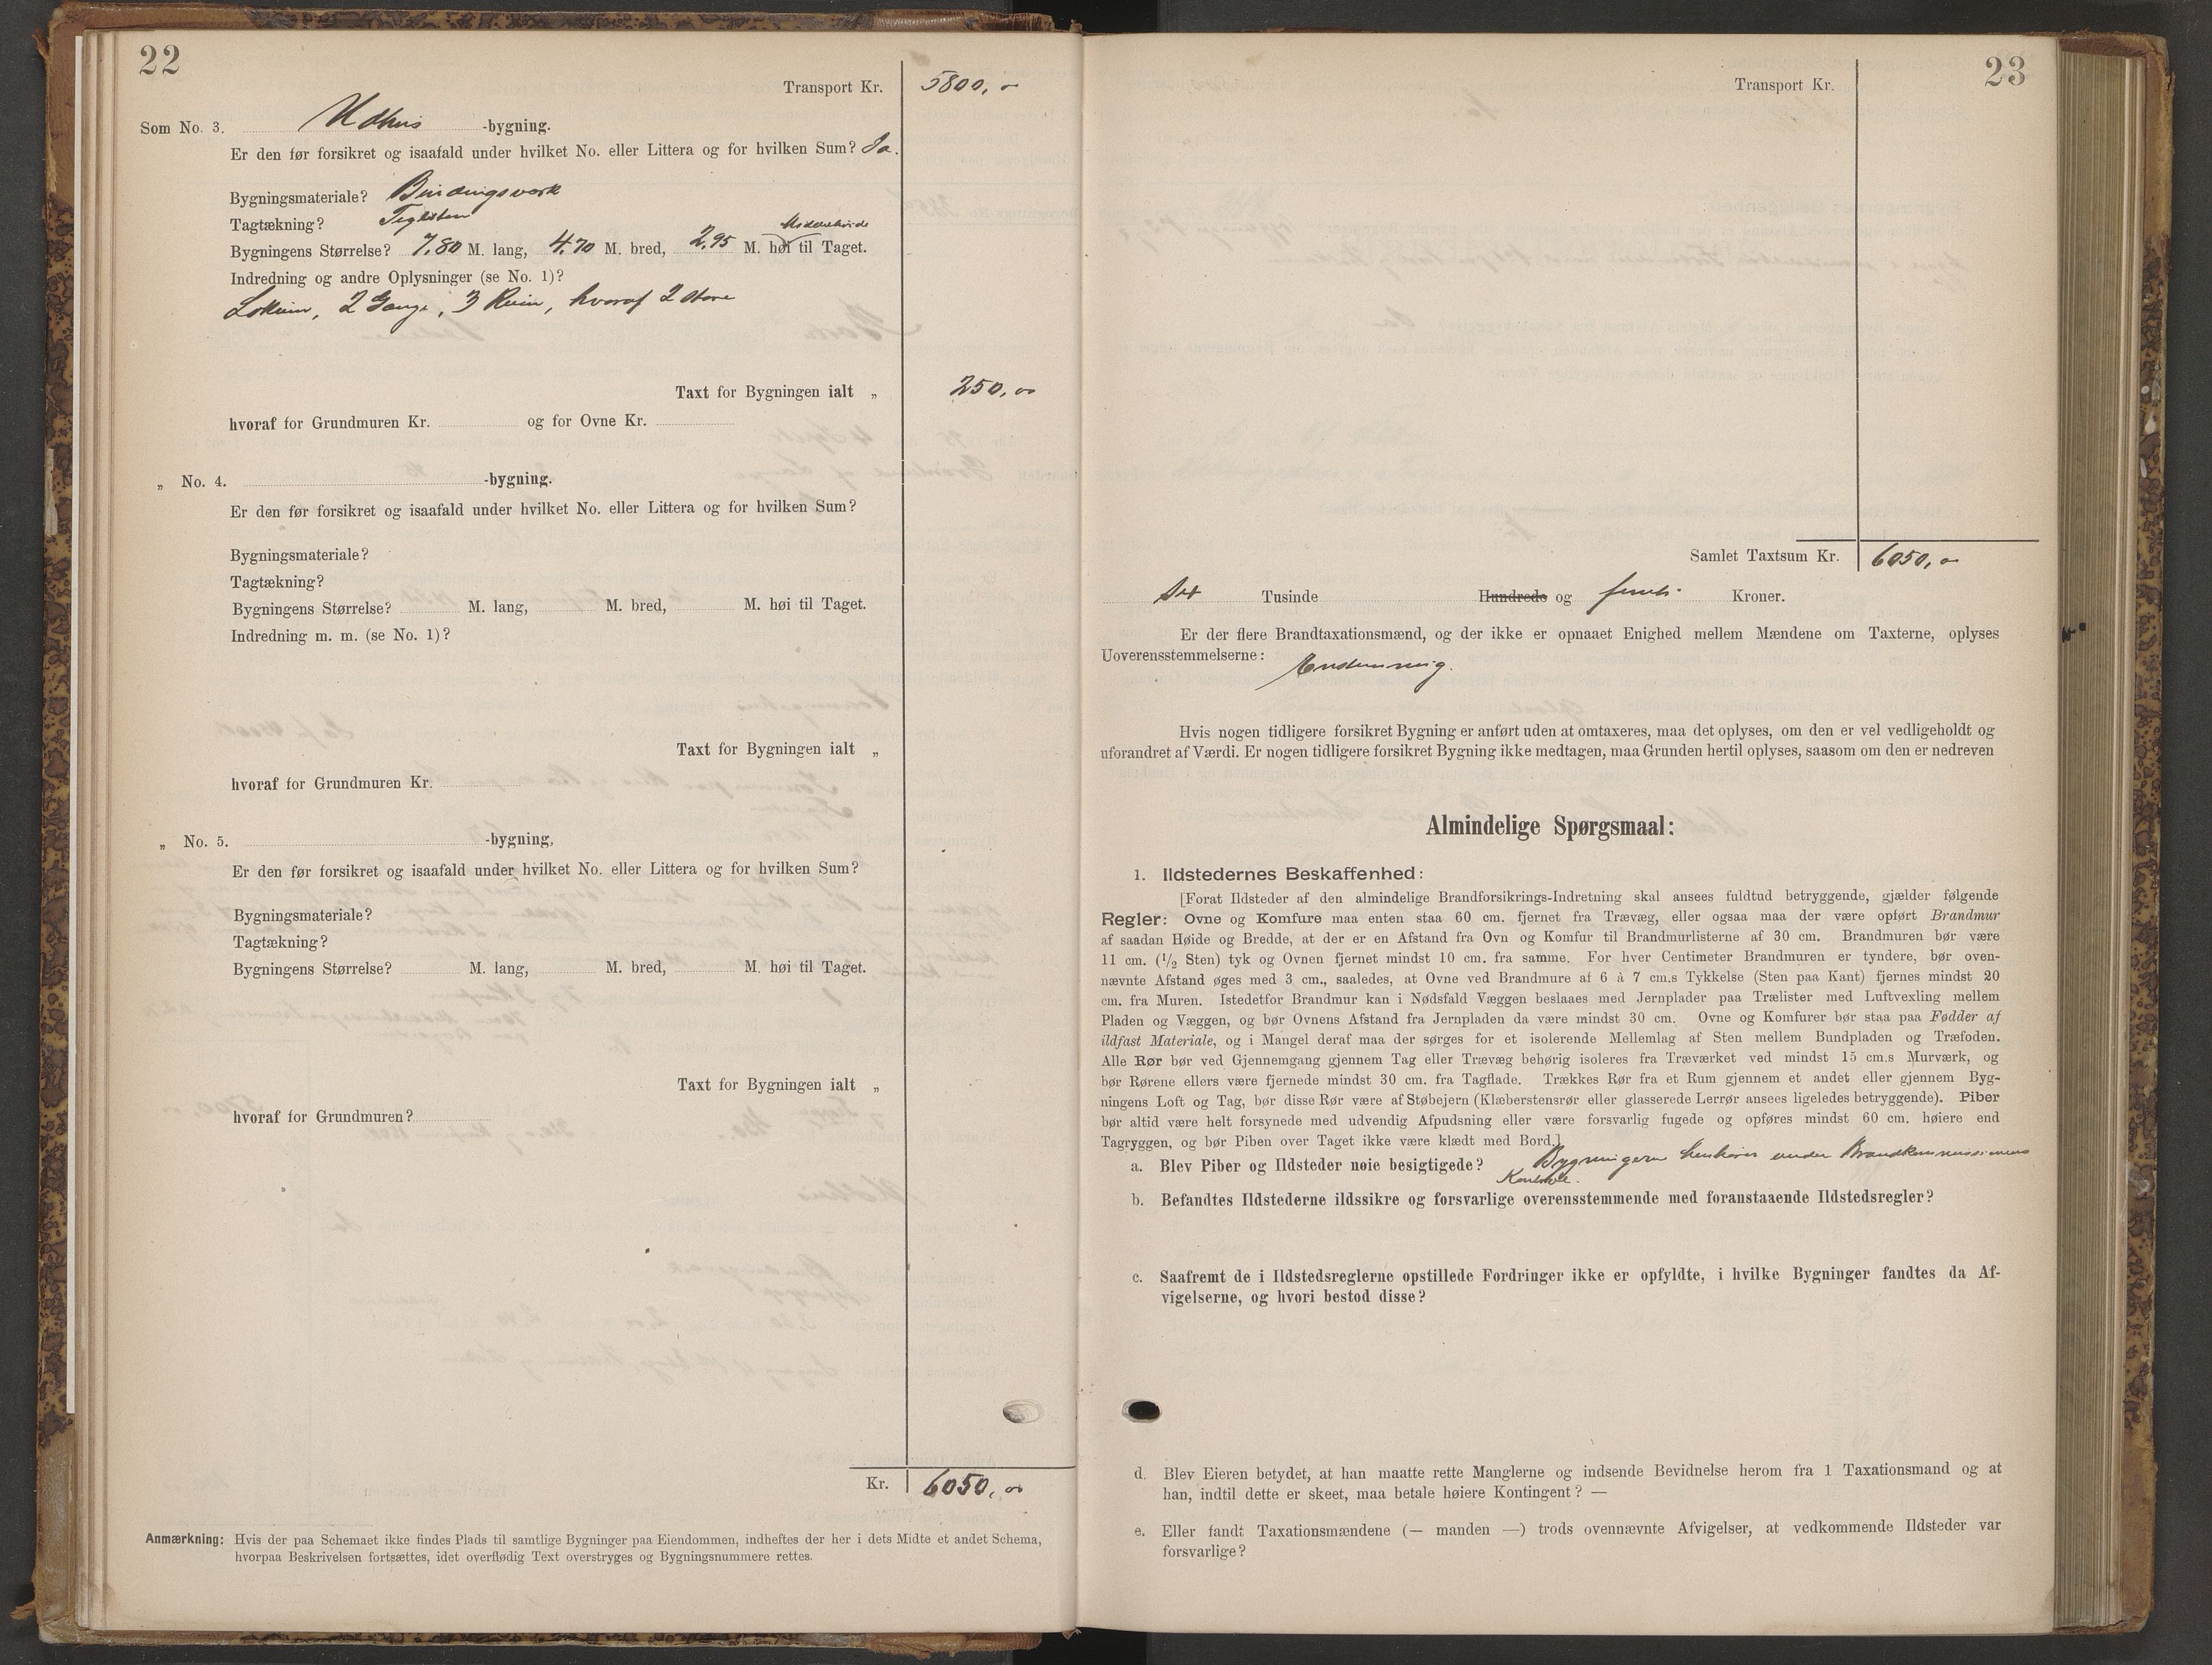 22
Transport Kr. 5800, "
Som No. 3. Udhus -bygning.
Er den før forsikret og isaafald under hvilket No. eller Littera og for hvilken Sum? Ja.
Bygningsmateriale? Bindingsværk
Tagtækning? Teglsten
Bygningens Størrelse? 7,80 M. lang, 4,70 M. bred, 2,95 M. høi til Taget.
Middelhøide
Indredning og andre Oplysninger (se No. 1)?
2 Gange, 3 Rum, hvoraf 2 store
Taxt for Bygningen ialt „ 250, oo
hvoraf for Grundmuren Kr. og for Ovne Kr.
„ No. 4. -bygning.
Er den før forsikret og isaafald under hvilket No. eller Littera og for hvilken Sum?
Bygningsmateriale?
Tagtækning?
Bygningens Størrelse? M. lang, M. bred, M. høi til Taget.
Indredning m. m. (se No. 1)?
Taxt for Bygningen ialt „
hvoraf for Grundmuren Kr.
„ No. 5. -bygning,
Er den før forsikret og isaafald under hvilket No. eller Littera og for hvilken Sum?
Bygningsmateriale?
Tagtækning?
Bygningens Størrelse? M. lang, M. bred, M. høi til Taget.
Taxt for Bygningen ialt „
hvoraf for Grundmuren?
Kr. 6050, oo
Anmærkning: Hvis der paa Schemaet ikke findes Plads til samtlige Bygninger paa Eiendommen, indheftes der her i dets Midte et andet Schema,
hvorpaa Beskrivelsen fortsættes, idet overflødig Text overstryges og Bygningsnummere rettes.
23
Transport Kr.
Samlet Taxtsum Kr. 6050, oo
Sex Tusinde Hundrede og femti Kroner.
Er der flere Brandtaxationsmænd, og der ikke er opnaaet Enighed mellem Mændene om Taxterne, oplyses
Uoverensstemmelserne: Enstemmig.
Hvis nogen tidligere forsikret Bygning er anført uden at omtaxeres, maa det oplyses, om den er vel vedligeholdt og
uforandret af Værdi. Er nogen tidligere forsikret Bygning ikke medtagen, maa Grunden hertil oplyses, saasom om den er nedreven
Almindelige Spørgsmaal:
1. Ildstedernes Beskaffenhed:
[Forat Ildsteder af den almindelige Brandforsikrings-Indretning skal ansees fuldtud betryggende, gjælder følgende
Regler: Ovne og Komfure maa enten staa 60 cm. fjernet fra Trævæg, eller ogsaa maa der være opført Brandmur
af saadan Høide og Bredde, at der er en Afstand fra Ovn og Komfur til Brandmurlisterne af 30 cm. Brandmuren bør være
11 cm. (1/2 Sten) tyk og Ovnen fjernet mindst 10 cm. fra samme. For hver Centimeter Brandmuren er tyndere, bør oven-
nævnte Afstand øges med 3 cm., saaledes, at Ovne ved Brandmure af 6 à 7 cm.s Tykkelse (Sten paa Kant) fjernes mindst 20
cm. fra Muren. Istedetfor Brandmur kan i Nødsfald Væggen beslaaes med Jernplader paa Trælister med Luftvexling mellem
Pladen og Væggen, og bør Ovnens Afstand fra Jernpladen da være mindst 30 cm. Ovne og Komfurer bør staa paa Fødder af
ildfast Materiale, og i Mangel deraf maa der sørges for et isolerende Mellemlag af Sten mellem Bundpladen og Træfoden.
Alle Rør bør ved Gjennemgang gjennem Tag eller Trævæg behørig isoleres fra Træværket ved mindst 15 cm.s Murværk, og
bør Rørene ellers være fjernede mindst 30 cm. fra Tagflade. Trækkes Rør fra et Rum gjennem et andet eller gjennem Byg-
ningens Loft og Tag, bør disse Rør være af Støbejern (Klæberstensrør eller glasserede Lerrør ansees ligeledes betryggende). Piber
bør altid være helt forsynede med udvendig Afpudsning eller være forsvarlig fugede og opføres mindst 60 cm. høiere end
Tagryggen, og bør Piben over Taget ikke være klædt med Bord.]
a. Blev Piber og Ildsteder nøie besigtigede? Bygningerne henhører under Brandkommissionens
Kontrole.
b. Befandtes Ildstederne ildssikre og forsvarlige overensstemmende med foranstaaende Ildstedsregler?
c. Saafremt de i Ildstedsreglerne opstillede Fordringer ikke er opfyldte, i hvilke Bygninger fandtes da Af-
vigelserne, og hvori bestod disse?
d. Blev Eieren betydet, at han maatte rette Manglerne og indsende Bevidnelse herom fra 1 Taxationsmand og at
han, indtil dette er skeet, maa betale høiere Kontingent? —
e. Eller fandt Taxationsmændene (— manden —) trods ovennævnte Afvigelser, at vedkommende Ildsteder var
forsvarlige?